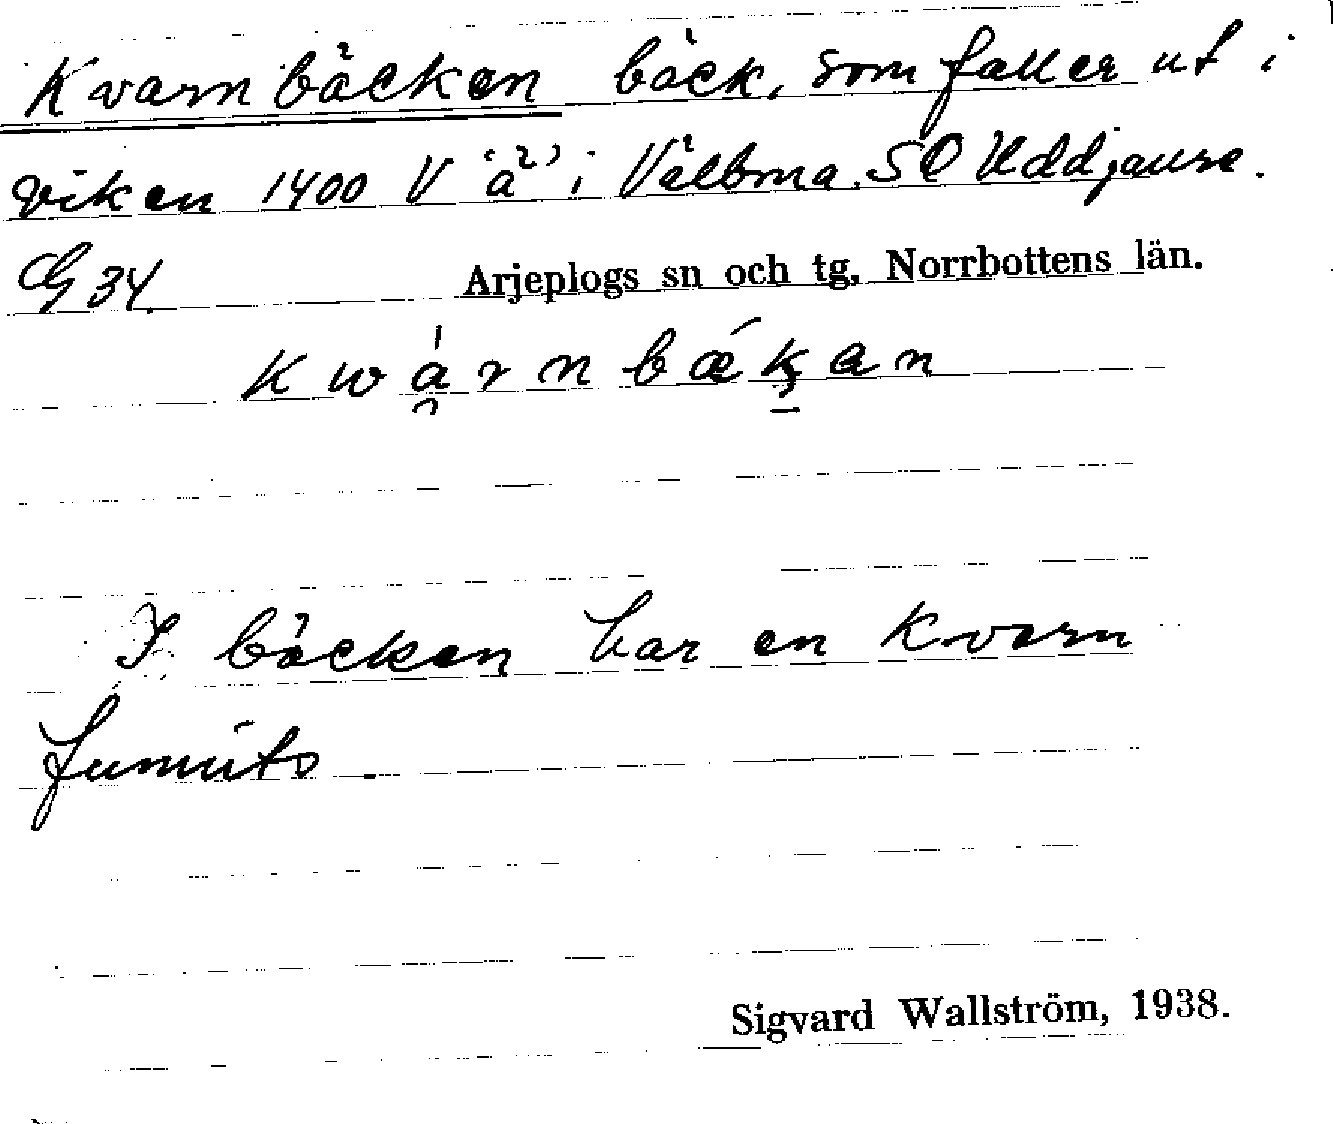 Kvarnbäcken bäck, som faller ut i
viken 1400 V "ä" i Välbma. SO Uddjaure.
G 34. Arjeplogs sn och tg, Norrbottens län.
kwa̯̍rnbǽk̠an
I bäcken har en kvarn
funnits
Sigvard Wallström, 1938.